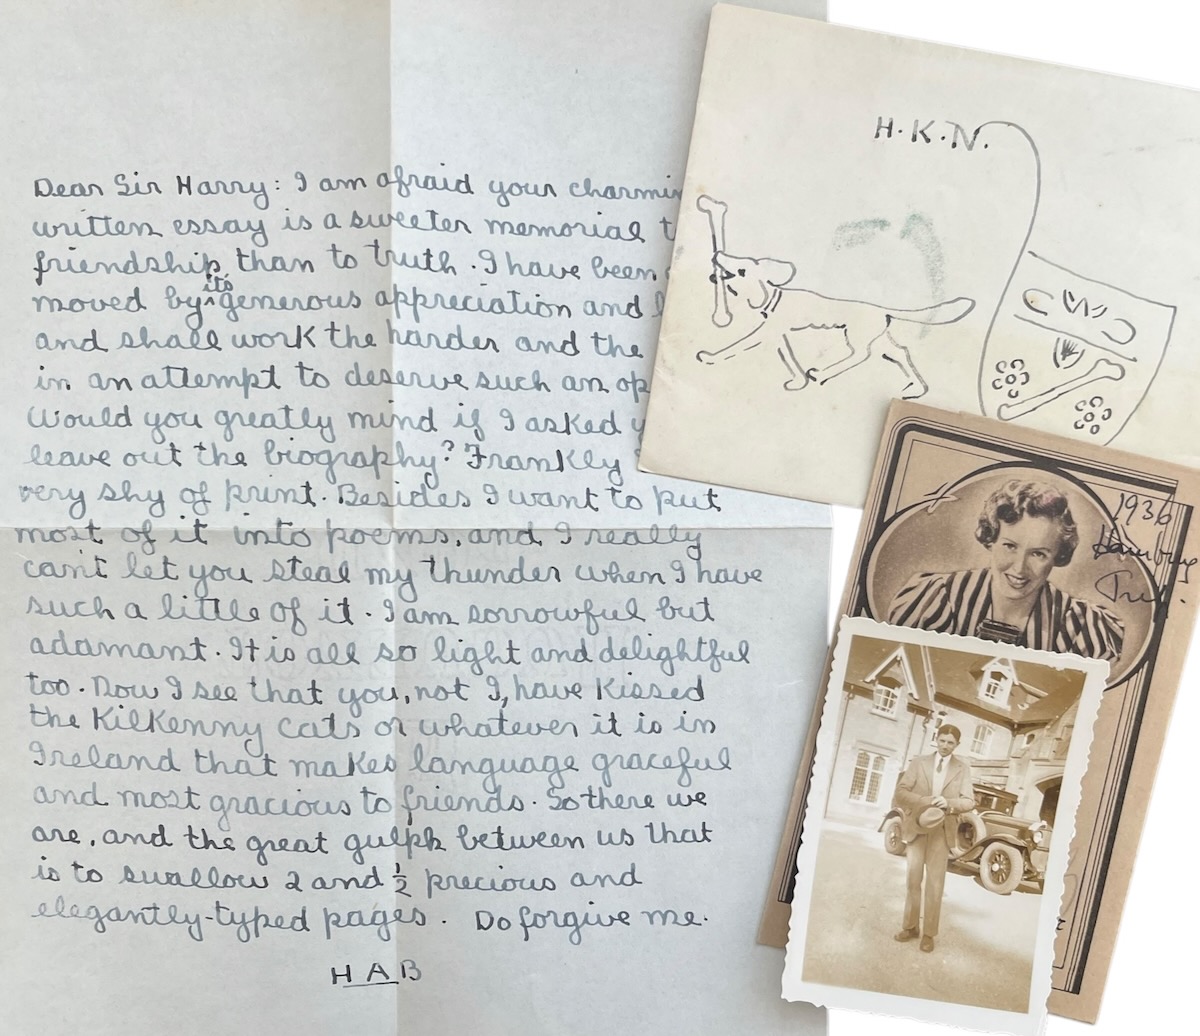 Dear Sir Harry: I am afraid your charmin
written essay is a sweeter memorial t
friendship, than to truth. I have been
moved by its generous appreciation and
and shall work the harder and the
in an attempt to deserve such an op
Would you greatly mind if I asked y
leave out the biography? Frankly
very shy of print. Besides I want to put
most of it into poems, and I really
can't let you steal my thunder when I have
such a little of it. I am sorrowful but
adamant. It is all so light and delightful
too. Now I see that you, not I, have kissed
the Kilkenny cats or whatever it is in
Ireland that makes language graceful
and most gracious to friends. So there we
are, and the great gulph between us that
is to swallow 2 and ½ precious and
elegantly-typed pages. Do forgive me.
HAB
H.K.N.
1936